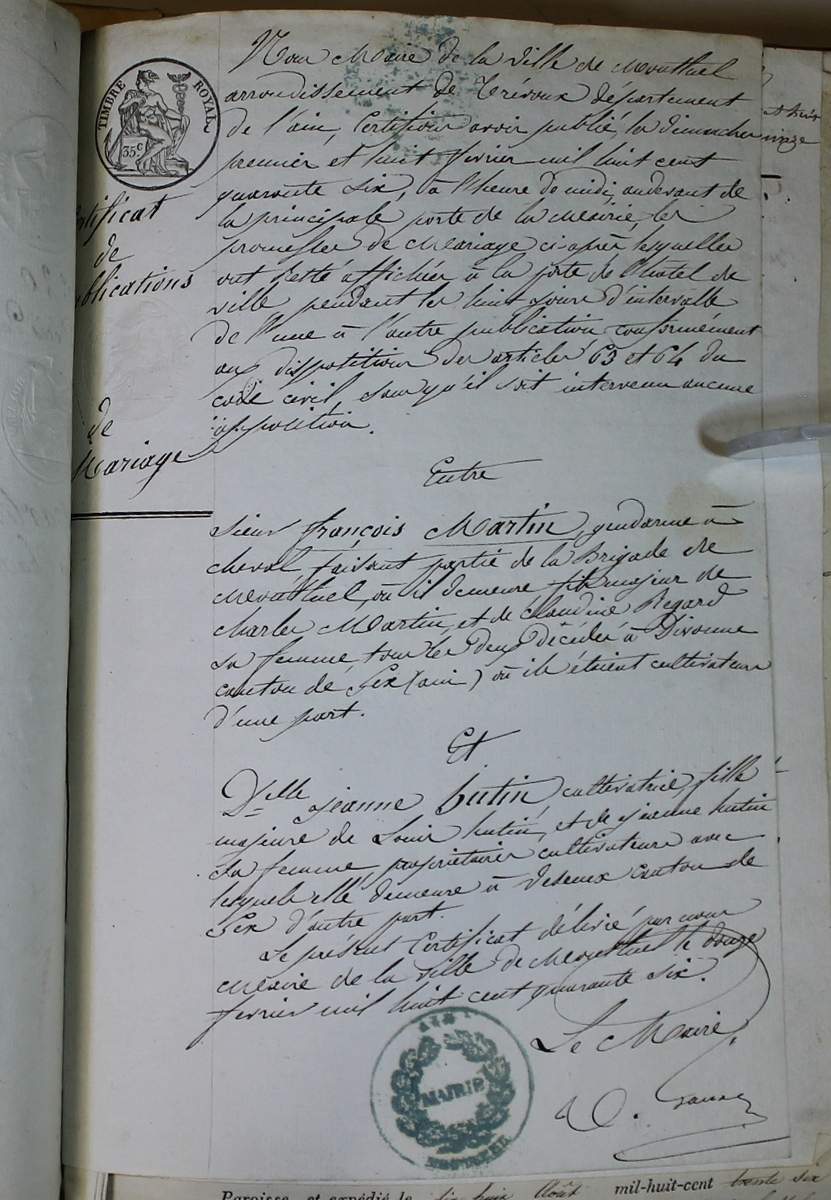 TIMBRE ROYAL
35c
Certificat
de
publications
de
Mariage
Nous Maire de la ville de Montluel
arrondissement de Trévoux département
de l'ain, Certifions avoir publié, les dimanches
premier et huit février mil huit cent
quarante six, à l'heure de midi, audevant de
la principale porte de la Mairie, les
promesses de Mariage ci après, lesquelles
ont resté affichées à la porte de l'hotel de
ville pendant les huit jours d'intervalle
de l'une à l'autre publication conformément
aux dispositions des articles 63 et 64 du
code civil, sans qu'il soit intervenu aucune
opposition.
Entre
Sieur françois Martin, gendarme à
cheval, faisant partie de la Brigade de
Montluel, où il demeure fils majeur de
Charles Martin, et de Claudine Regard
sa femme, tous les deux décédés à Divonne
canton de Gex (ain) où ils étaient cultivateurs
d'une part.
Et
Dlle jeanne hutin, cultivatrice, fille
majeure de Louis hutin, et de jeanne hutin
sa femme, propriétaires cultivateurs avec
lesquels elle demeure à canton de
Gex d'autre part.
Le présent Certificat délivré par nous
Maire de la ville de Montluel le douze
février mil huit cent quarante six.
Le Maire,
MAIRIE
Paroisse, et expédié le dix huit Août mil-huit-cent trente six